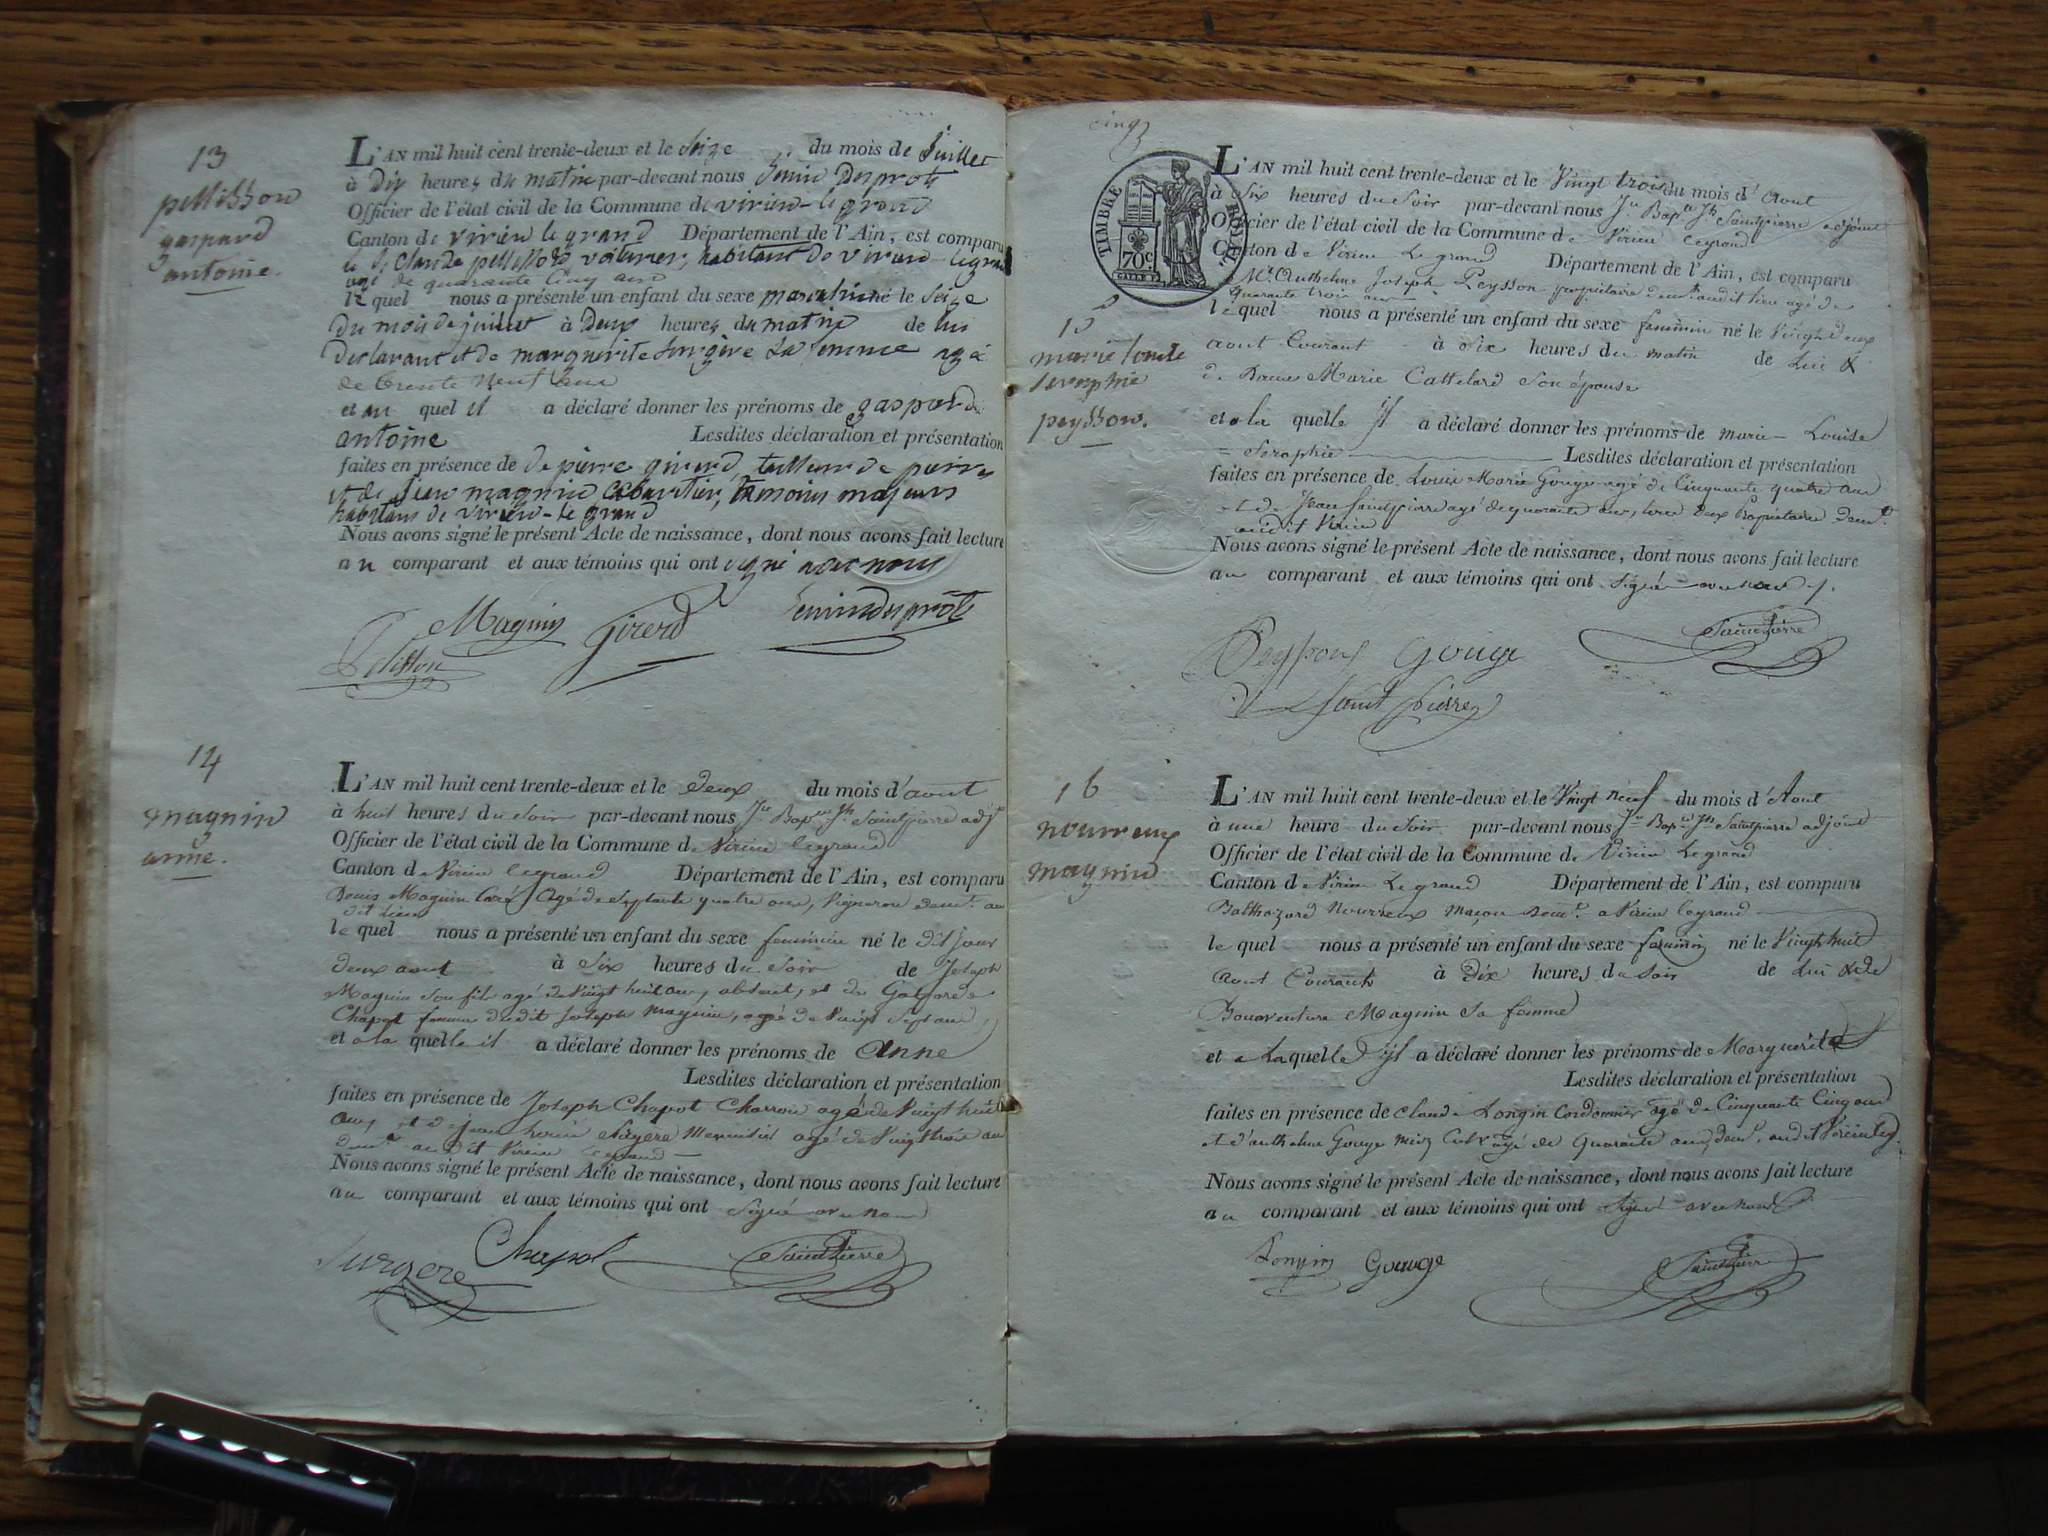 13
pellisson
gaspard
antoine.
L'AN mil huit cent trente-deux et le Seize du mois de Juillet
à Dix heures du matin par-devant nous
Officier de l'état civil de la Commune de virieu-le grand
Canton de virieu le grand Département de l'Ain, est comparu
le S. Claude pellisson voiturier, habitant de virieu-legrand
agé de quarante Cinq ans
lequel nous a présenté un enfant du sexe masculin né le Seize
du mois de juillet à Deux heures du matin de lui
declarant et de marguerite Surgère sa femme agée
de trente neuf ans
et au quel il a déclaré donner les prénoms de gaspard
antoine Lesdites déclaration et présentation
faites en présence de de pierre girard, tailleur de pierres
et de Jean magnin cabaretier, temoins majeurs
habitans de virieu-le grand
Nous avons signé le présent Acte de naissance, dont nous avons fait lecture
au comparant et aux témoins qui ont signé avec nous
Magnin Girerd
Pelisson
14
magnin
anne.
L'AN mil huit cent trente-deux et le deux du mois d'aout
à huit heures du Soir par-devant nous Jn Bapte Jh Saintpierre adjt
Officier de l'état civil de la Commune de Virieu legrand
Canton de Virieu legrand Département de l'Ain, est comparu
Denis Magnin Agé de Septante quatre ans, Vigneron demt. au
dit lieu
lequel nous a présenté un enfant du sexe feminin né le dit jour
deux aout à Six heures du Soir de Joseph
Magnin Son fils agé de Vingt huit ans, absent, et de
Chapot femme dudit Joseph Magnin, agée de Vingt Sept ans,
et a la quelle il a déclaré donner les prénoms de Anne
Lesdites déclaration et présentation
faites en présence de Joseph Chapot Charron agé de Vingt huit
ans, et de jean Menuisier agé de Vingt trois ans
demt au dit Virieu legrand
Nous avons signé le présent Acte de naissance, dont nous avons fait lecture
au comparant et aux témoins qui ont Signé avec nous
Surgere Chapot SaintPierre
cinq
TIMBRE ROYAL
70c
L'AN mil huit cent trente-deux et le Vingt trois du mois d'Aout
à Six heures du Soir par-devant nous Jn Bapte Jh Saintpierre adjoint
Officier de l'état civil de la Commune de Virieu legrand
Canton de Virieu Le grand Département de l'Ain, est comparu
Mr. Anthelme Joseph Peysson propriétaire demt audit lieu agé de
quarante trois ans
15
marie louise
seraphie
peysson.
lequel nous a présenté un enfant du sexe feminin né le Vingt deux
aout Courant à dix heures du matin de Lui &
de Dame Marie Cattelard Son épouse
et a la quelle il a déclaré donner les prénoms de marie - Louise
= Seraphie Lesdites déclaration et présentation
faites en présence de Louis Marie Gouge agé de Cinquante quatre ans
et de Jean Saintpierre agé de quarante ans, tous deux Propriétaires demt.
audit Virieu
Nous avons signé le présent Acte de naissance, dont nous avons fait lecture
au comparant et aux témoins qui ont Signé avec nous
Peysson Gouge SaintPierre
Saint Pierre
16
nourreux
magnin
L'AN mil huit cent trente-deux et le Vingt neuf du mois d'Aout
à une heure du Soir par-devant nous Jn Bapte Jh Saintpierre adjoint
Officier de l'état civil de la Commune de Virieu Le grand
Canton de Virieu Le grand Département de l'Ain, est comparu
Balthazard Nourreux maçon demt. a Virieu legrand
lequel nous a présenté un enfant du sexe feminin né le Vingt huit
aout Courant à Dix heures du Soir de Lui & de
Bonaventure Magnin Sa femme
et a Laquelle il a déclaré donner les prénoms de Marguerite
Lesdites déclaration et présentation
faites en présence de Claude Longin Cordonnier agé de Cinquante Cinq ans
et d'anthelme Gouge agé de quarante ans, demt. audit Virieu
Nous avons signé le présent Acte de naissance, dont nous avons fait lecture
au comparant et aux témoins qui ont Signé avec nous
Longin Gouge SaintPierre